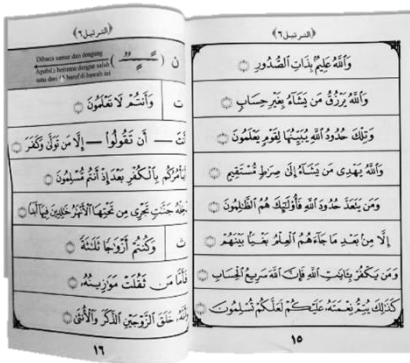 ﴿الترتيل٦﴾
وَاللَّهُ عَلِيمٌ بِذَاتِ الصُّدُورِ
وَاللَّهُ يَرْزُقُ مَن يَشَاءُ بِغَيْرِ حِسَابٍ
وَتِلْكَ حُدُودُ اللَّهِ يُبَيِّنُهَا لِقَوْمٍ يَعْلَمُونَ
وَاللَّهُ يَهْدِى مَن يَشَاءُ إِلَى صِرَاطٍ مُّسْتَقِيمٍ
وَمَن يَتَعَدَّ حُدُودَ اللَّهِ فَأُولَٰئِكَ هُمُ الظَّٰلِمُونَ
إِلَّا مِن بَعْدِ مَا جَاءَهُمُ الْعِلْمُ بَغْيًا بَيْنَهُمْ
وَمَن يَكْفُرْ بِـَٔايَٰتِ اللَّهِ فَإِنَّ اللَّهَ سَرِيعُ الْحِسَابِ
كَذَٰلِكَ يُتِمُّ نِعْمَتَهُۥ عَلَيْكُمْ لَعَلَّكُمْ تُسْلِمُونَ
١٥
﴿الترتيل٦﴾
ن
Dibaca samar dan dengung
Apabila bertemu dengan salah
satu dari 15 huruf di bawah ini
ت
وَأَنتُمْ لَا تَعْلَمُونَ
أَن تَقُولُوا — إِلَّا مَن تَوَلَّىٰ وَكَفَرَ
بِالْكُفْرِ بَعْدَ إِذْ أَنتُم مُّسْلِمُونَ
جَنَّٰتٍ تَجْرِى مِن تَحْتِهَا الْأَنْهَٰرُ خَٰلِدِينَ فِيهَا
ث
وَكُنتُمْ أَزْوَٰجًا ثَلَٰثَةً
فَأَمَّا مَن ثَقُلَتْ مَوَٰزِينُهُۥ
خَلَقَ الزَّوْجَيْنِ الذَّكَرَ وَالْأُنثَىٰ
١٦